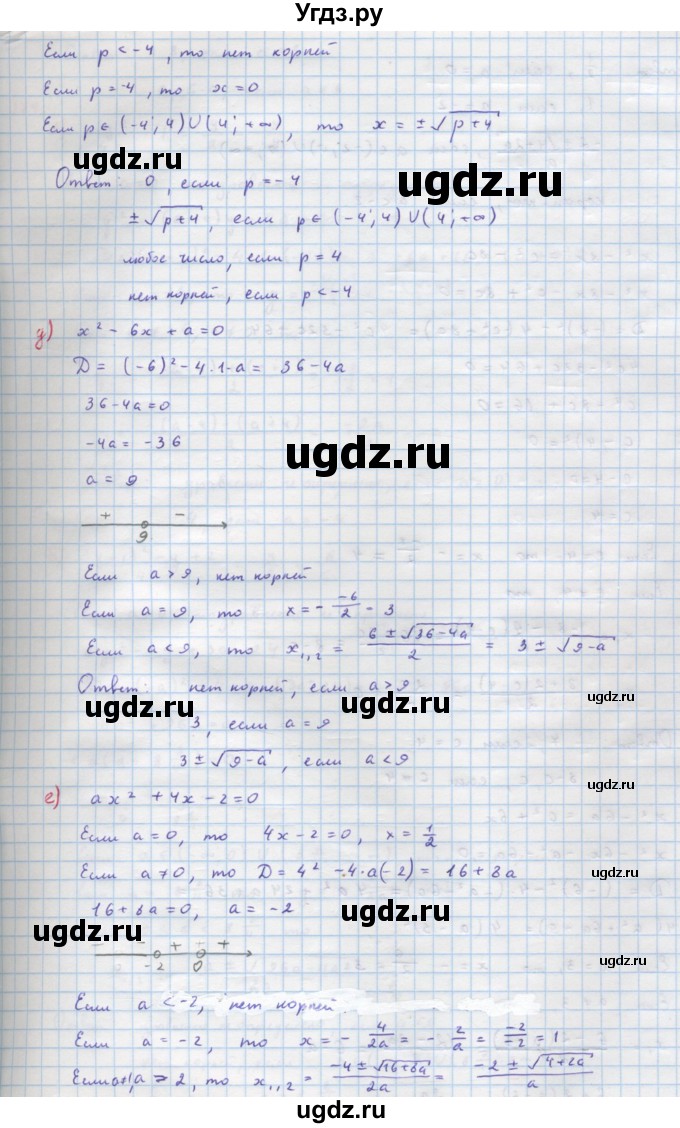 Угдз.ру
Если p < -4, то нет корней
Если p = -4, то x = 0
Если p ∈ (-4; 4) ∪ (4; +∞), то x = ±√(p+4)
ugdz.ru ugdz.ru
Ответ: 0, если p = -4
±√(p+4), если p ∈ (-4; 4) ∪ (4; +∞)
любое число, если p = 4
нет корней, если p < -4
д) x² - 6x + a = 0
D = (-6)² - 4·1·a = 36 - 4a
ugdz.ru
36 - 4a = 0
-4a = -36
ugdz.ru
a = 9
+ -
9
ugdz.ru ugdz.ru
Если a > 9, нет корней
Если a = 9, то x = - -6/2 - 3
Если a < 9, то x₁,₂ = (6 ± √(36-4a))/2 = 3 ± √(9-a)
ugdz.ru
Ответ: нет корней, если a > 9
ugdz.ru ugdz.ru
3, если a = 9
3 ± √(9-a), если a < 9
ugdz.ru
е) ax² + 4x - 2 = 0
Если a = 0, то 4x - 2 = 0, x = 1/2
Если a ≠ 0, то D = 4² - 4·a(-2) = 16 + 8a
ugdz.ru
16 + 8a = 0, a = -2
ugdz.ru
ugdz.ru
- + +
-2 0
ugdz.ru
Если a < -2, нет корней
Если a = -2, то x = - 4/2a = - 2/a = -2/-2 = 1
ugdz.ru
Если a > 2, то x₁,₂ = (-4 ± √(16+8a))/2a = (-2 ± √(4+2a))/a
ugdz.ru